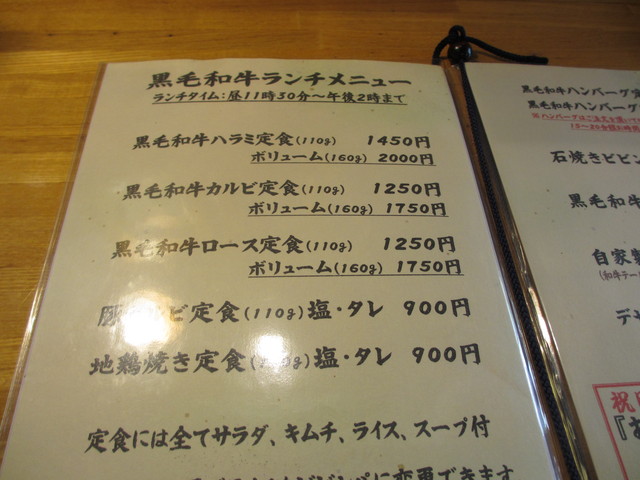 黒毛和牛ランチメニュー
ランチタイム:昼11時30分~午後2時まで
黒毛和牛ハラミ定食(110g) 1450円
ボリューム(160g) 2000円
黒毛和牛カルビ定食(110g) 1250円
ボリューム(160g) 1750円
黒毛和牛ロース定食(110g) 1250円
ボリューム(160g) 1750円
豚カルビ定食(110g)塩・タレ 900円
地鶏焼き定食( g)塩・タレ 900円
定食には全てサラダ、キムチ、ライス、スープ付
に変更できます
黒毛和牛ハンバーグ
黒毛和牛ハンバーグ
※ハンバーグはご注文を
石焼きビビン
黒毛和牛
自家製
(和牛テー
デ
祝
『お